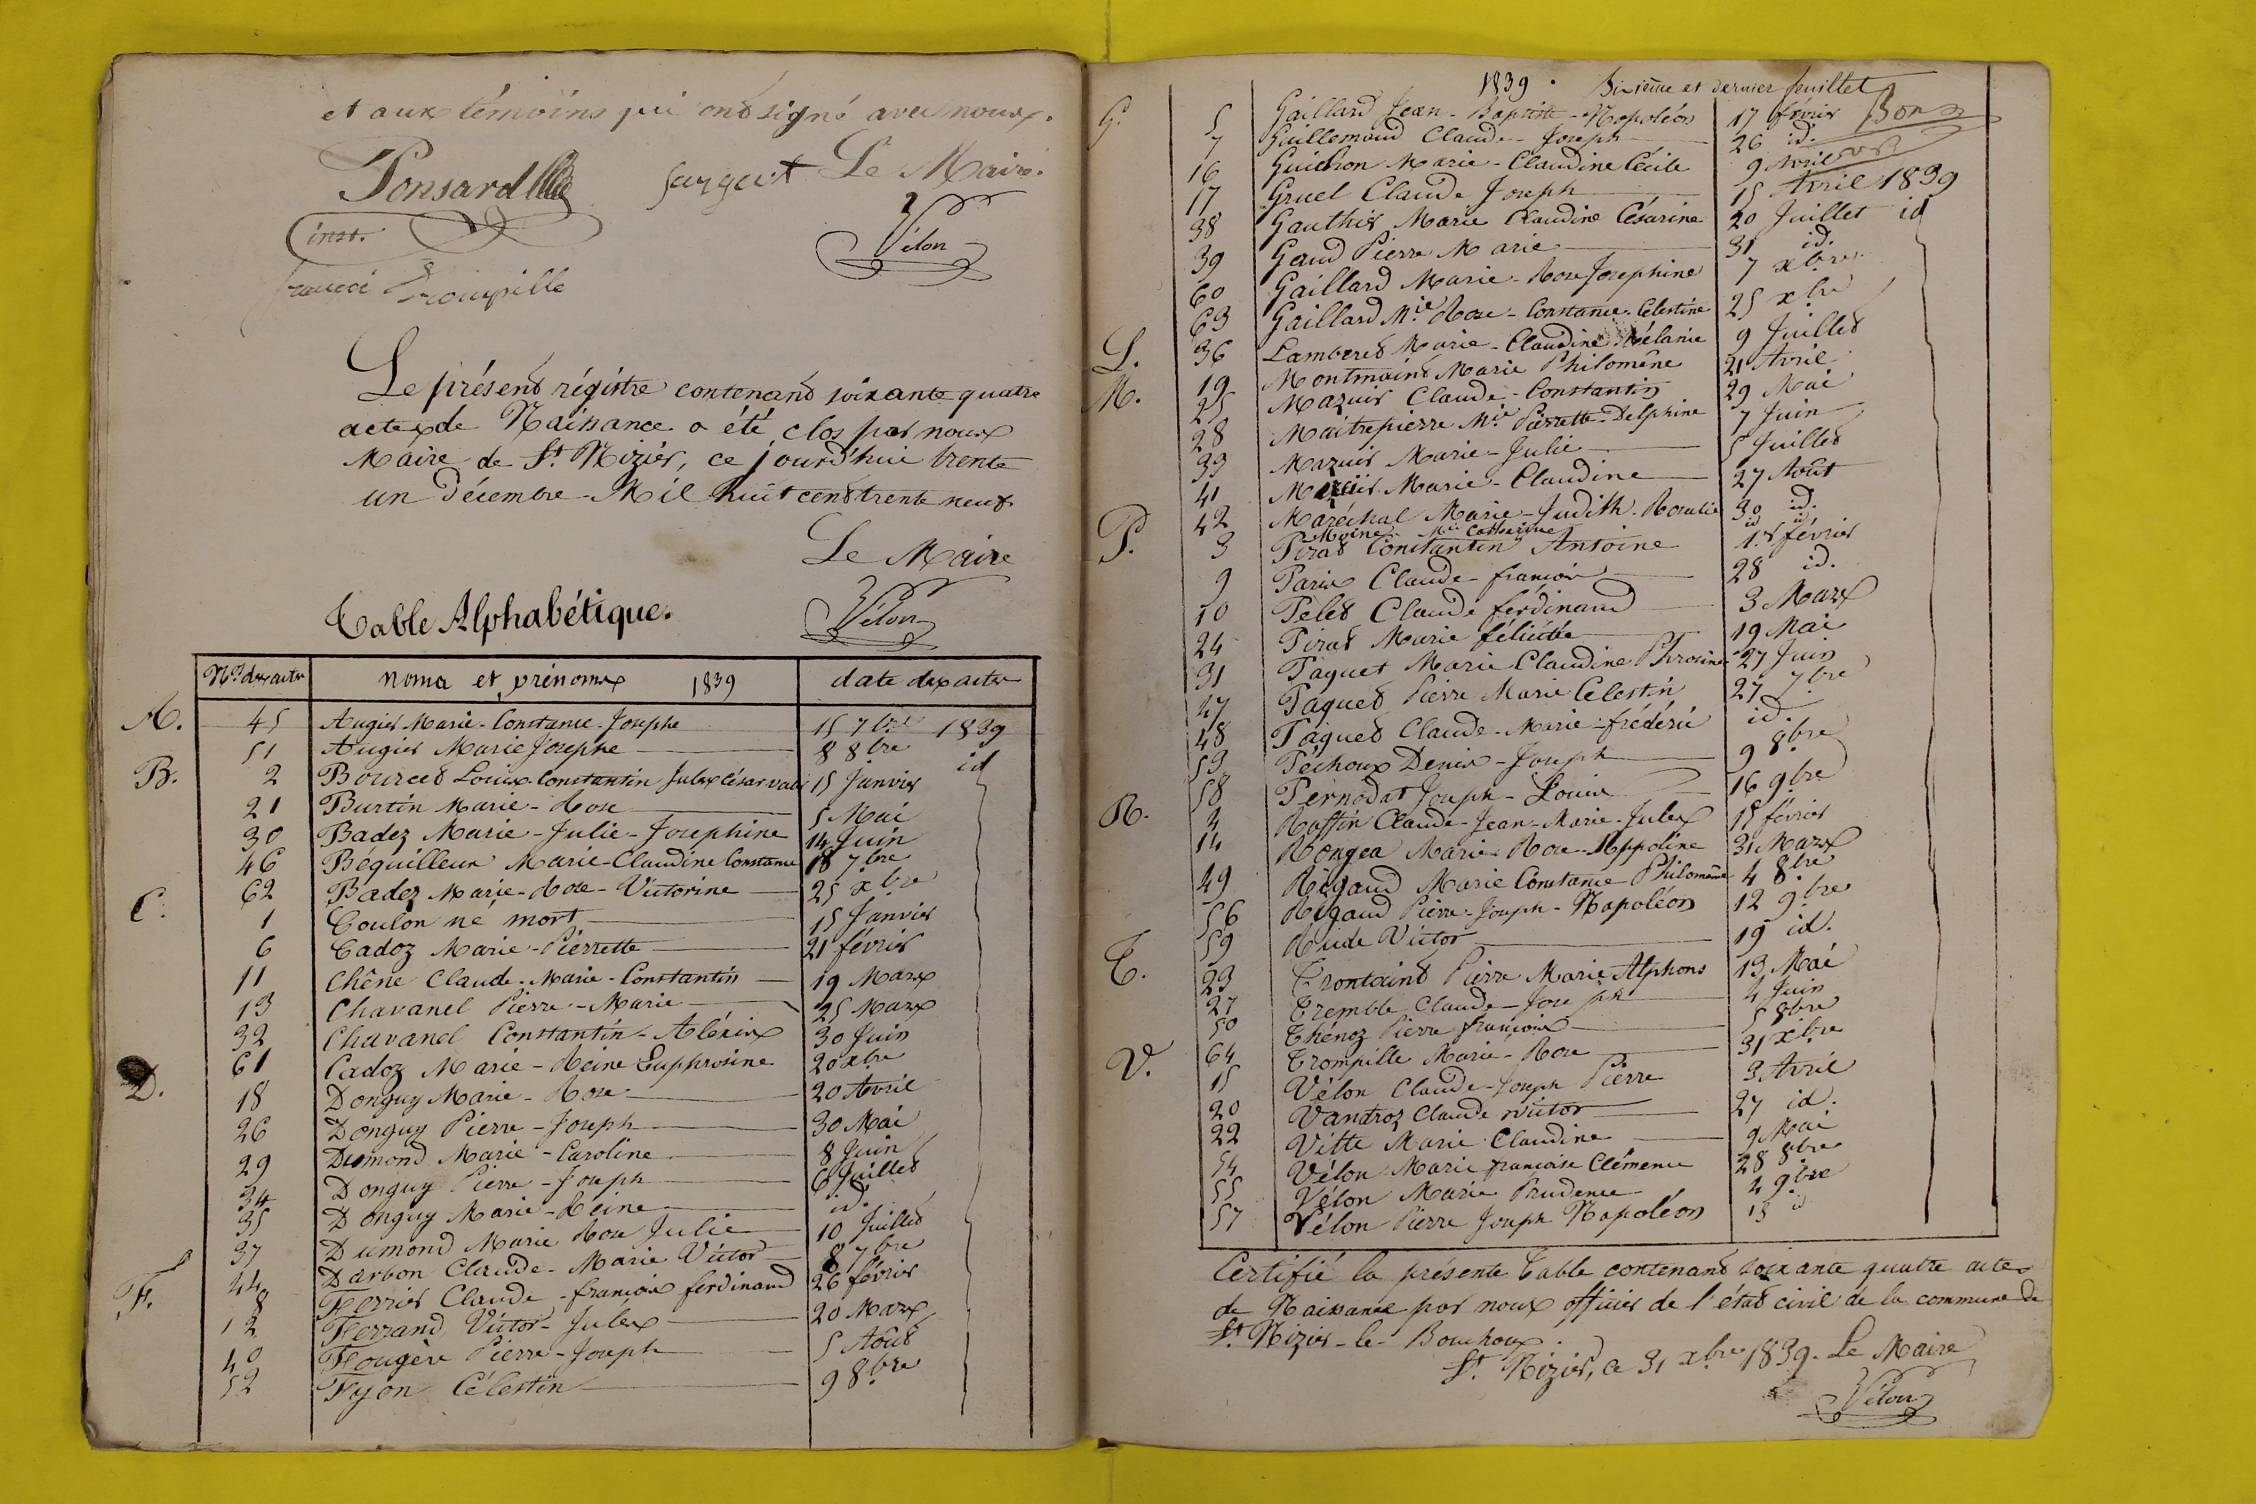 et aux témoins qui ont signé avec nous.
Ponsard Sargent Le Maire.
inst. Vélon
Trompille
Le présent régistre contenant soixante quatre
actes de Naissance a été clos par nous
Maire de St. Nizier, ce jourd'hui trente
un Décembre Mil huit cent trente neuf.
Le Maire
Vélon
Table Alphabétique.
Nos. des actes noms et prénoms 1839 date des actes
A. 45 Augier Marie-Constance-Josephe 15 7bre 1839
51 Augier Marie Josephe 8 8bre id
B. 2 Bourcet Louis Constantin Jules César 15 Janvier
21 Burtin Marie-Rose 5 Mai
30 Badez Marie-Julie-Josephine 14 Juin
46 Béguilleur Marie-Claudine Constance 18 7bre
62 Badez Marie-Rose-Victorine 25 xbre
C. 1 Coulon né mort 15 Janvier
6 Cadoz Marie-Pierrette 21 février
11 Chêne Claude-Marie-Constantin 19 Mars
13 Chavanel Pierre-Marie 25 Mars
32 Chavanel Constantin-Alexis 30 Juin
61 Cadoz Marie-Reine Euphrosine 20 xbre
D. 18 Donguy Marie-Rose 20 Avril
26 Donguy Pierre-Joseph 30 Mai
29 Dumond Marie-Caroline 8 Juin
34 Donguy Pierre-Joseph 6 Juillet
35 Donguy Marie-Reine id.
37 Dumond Marie Rose Julie 10 Juillet
44 Darbon Claude-Marie Victor 8 7bre
F. 8 Ferrier Claude-françois ferdinand 26 février
12 Ferrand Victor-Jules 20 Mars
40 Fougère Pierre-Joseph 5 Août
52 Fyon Célestin 9 8bre
1839. Dixième et dernier feuillet
G. 5 Gaillard Jean-Baptiste-Napoléon 17 février Bon
7 Guillemaud Claude-Joseph 26 id.
16 Guichon Marie-Claudine Cécile 9 Avril
17 Gruel Claude Joseph 15 Avril 1839
38 Gauthier Marie Claudine Césarine 20 Juillet id
39 Gaud Pierre Marie 31 id.
60 Gaillard Marie-Rose Josephine 7 xbre
63 Gaillard Mie. Rose-Constance-Célestine 25 xbre
L. 36 Lamberet Marie-Claudine Mélanie 9 Juillet
M. 19 Montmaint Marie Philomène 21 Avril
25 Mazuir Claude-Constantin 29 Mai
28 Maitrepierre Mie. Pierrette-Delphine 7 Juin
33 Mazuir Marie-Julie 5 Juillet
41 Mazuir Marie-Claudine 27 Août
42 Maréchal Marie-Judith-Rosalie 30 id.
Moine Mie Catherine id id
P. 3 Pirat Constantin Antoine 1er février
9 Paris Claude-françois 28 id.
10 Pelet Claude ferdinand 3 Mars
24 Pirat Marie félicitée 19 Mai
31 Paquet Marie Claudine Phrosine 27 Juin
47 Paquet Pierre Marie Celestin 27 7bre
48 Paquet Claude-Marie-frédéric id.
53 Péchoux Denis-Joseph 9 8bre
58 Pernodat Joseph-Louis 16 9bre
R. 4 Raffin Claude-Jean-Marie-Jules 15 février
14 Rongea Marie-Rose-Appoline 31 Mars
49 Rigaud Marie Constance Philomène 4 8bre
56 Rigaud Pierre-Joseph-Napoléon 12 9bre
59 Rude Victor 19 id.
T. 23 Trontaint Pierre Marie Alphons 13 Mai
27 Tremble Claude-Joseph 4 Juin
50 Thénoz Pierre françois 5 8bre
64 Trompille Marie-Rose 31 xbre
V. 15 Vélon Claude-Joseph Pierre 3 Avril
20 Vandroz Claude victor 27 id.
22 Vitte Marie Claudine 9 Mai
54 Vélon Marie françoise Clémence 28 8bre
55 Vélon Marie Prudence 4 9bre
57 Vélon Pierre Joseph Napoléon 15 id
Certifié la présente Table contenant soixante quatre actes
de Naissance par nous officier de l'état civil de la commune de
St. Nizier-le-Bouchoux.
St. Nizier, ce 31 xbre 1839. Le Maire
Vélon